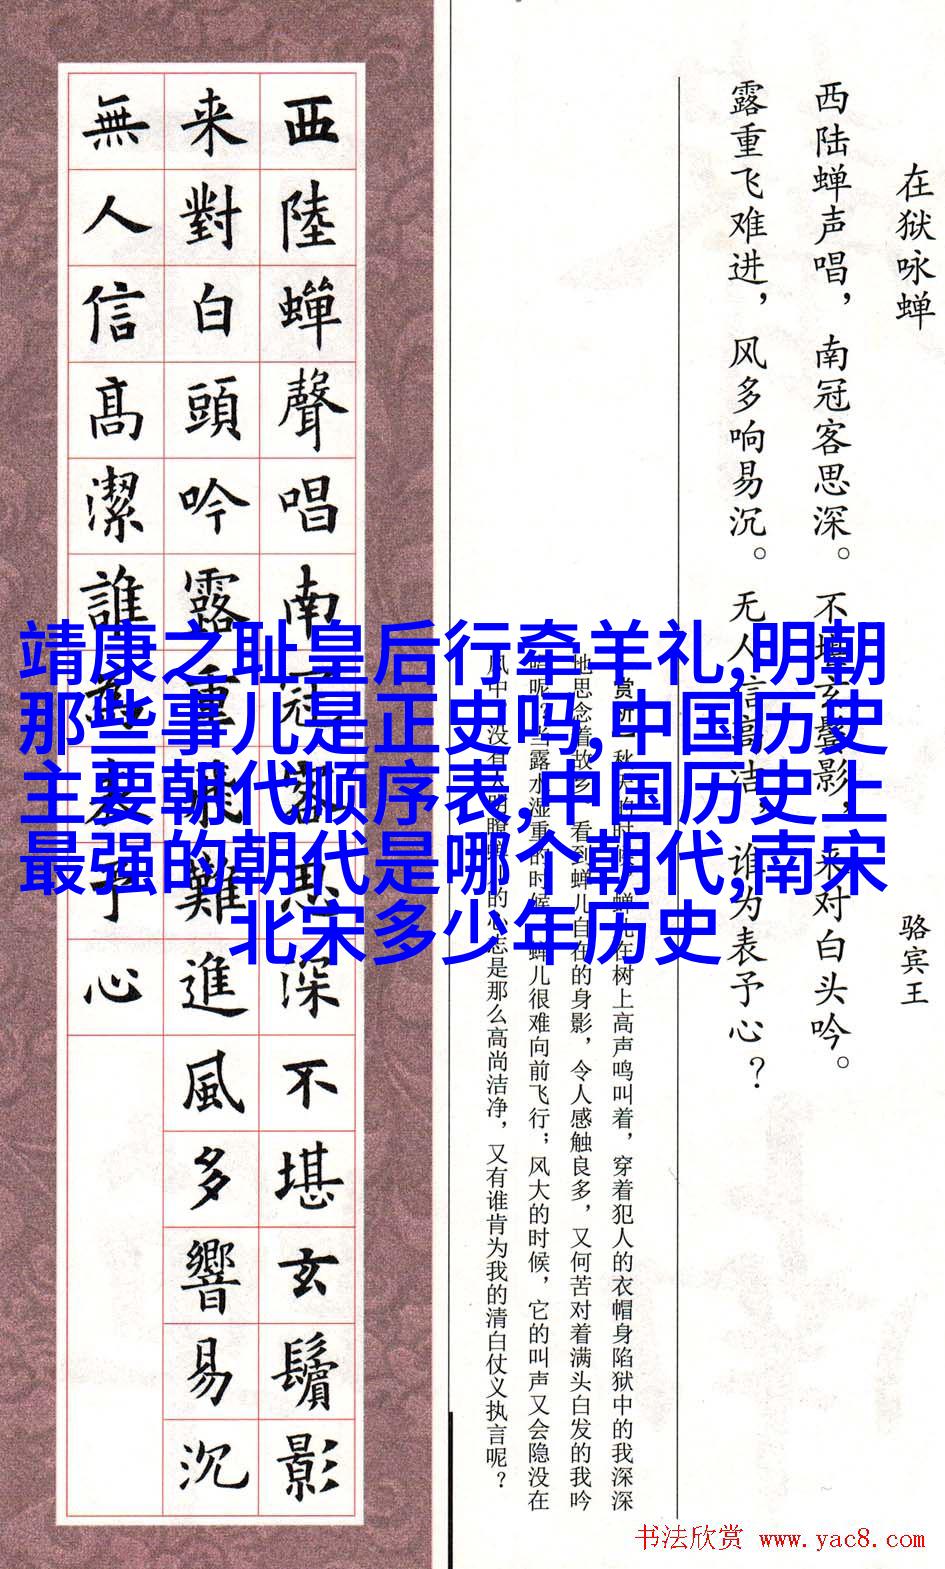 靖康之耻皇后行牵羊礼,明朝
那些事儿是正史吗,中国历史
主要朝代顺序表,中国历史上
最强的朝代是哪个朝代,南宋
北宋多少年历史
在狱咏蝉
骆宾王
西陆蝉声唱，南冠客思深。不堪玄鬓影，来对白头吟。
露重飞难进，风多响易沉。无人信高洁，谁为表予心？
赏析 秋天的时候，蝉儿在树上高声鸣叫着，穿着犯人的衣帽身陷狱中的我深深
地思念着故乡，看到蝉儿自在的身影，令人感触良多，又何苦对着满头白发的我吟
呢？当露水湿重的时候，蝉儿很难向前飞行；风大的时候，它的叫声又会隐没在
风中。没有人明瞭蝉儿的心志是那么高尚洁净，又有谁肯为我的清白仗义执言呢？
西陸蟬聲唱南冠客思深不堪玄鬢影
来對白頭吟露重飛難進風多響易沉
無人信髙潔誰為表予心
书法欣赏 www.yac8.com